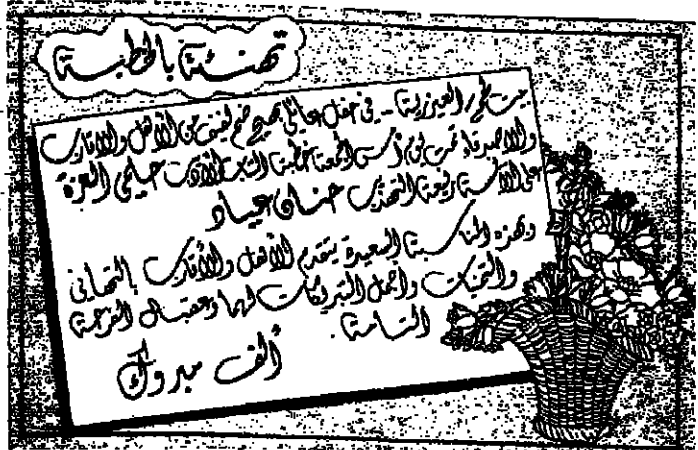 تهنئة بالخطبة
بيت لحم/ العيزرية - في حفل عائلي بهيج ضم لفيف من الأهل والأقارب
والأصدقاء تمت يوم أمس الجمعة خطبة الشاب الأديب حلمي العزة
على الآنسة رفيعة التهذيب حنان عياد
وبهذه المناسبة السعيدة يتقدم الأهل والأقارب بالتهاني
والتمنيات وأجمل التبريكات لهما وعقبال الفرحة
التامة.
ألف مبروك